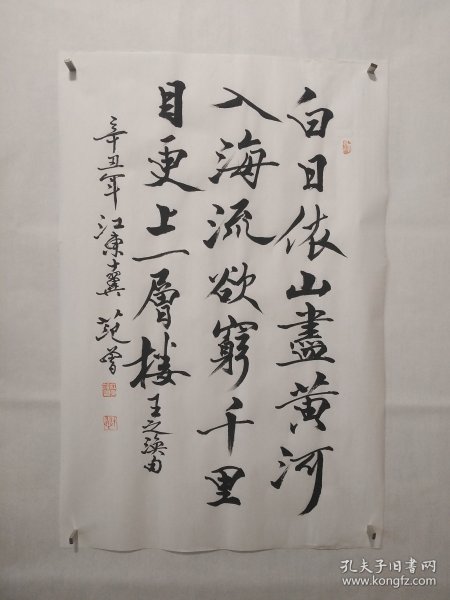 白日依山盡黄河
入海流欲窮千里
目更上一層楼
王之涣句
辛丑年江東十翼范曾
孔夫子旧书网
www.kongfz.com